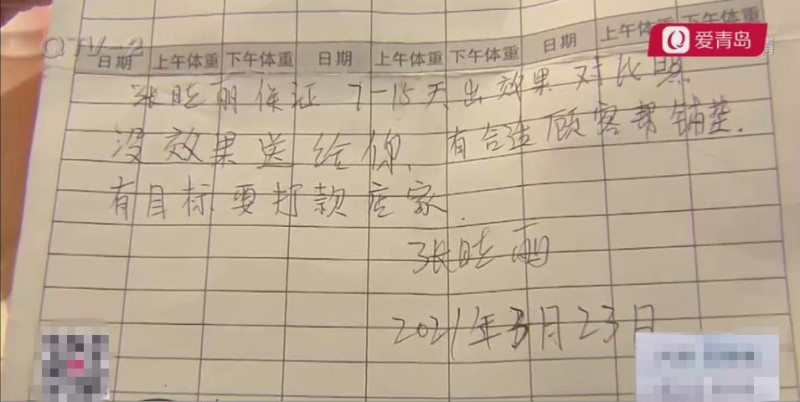 爱青岛
QTV-2
日期 上午体重 下午体重 日期 上午体重 下午体重 日期 上午体重 下午体重
张晓丽保证 7-15天出效果 对比照
没效果送给你、有合适顾客帮铺垫.
有目标要打款店家.
张晓丽
2021年3月23日